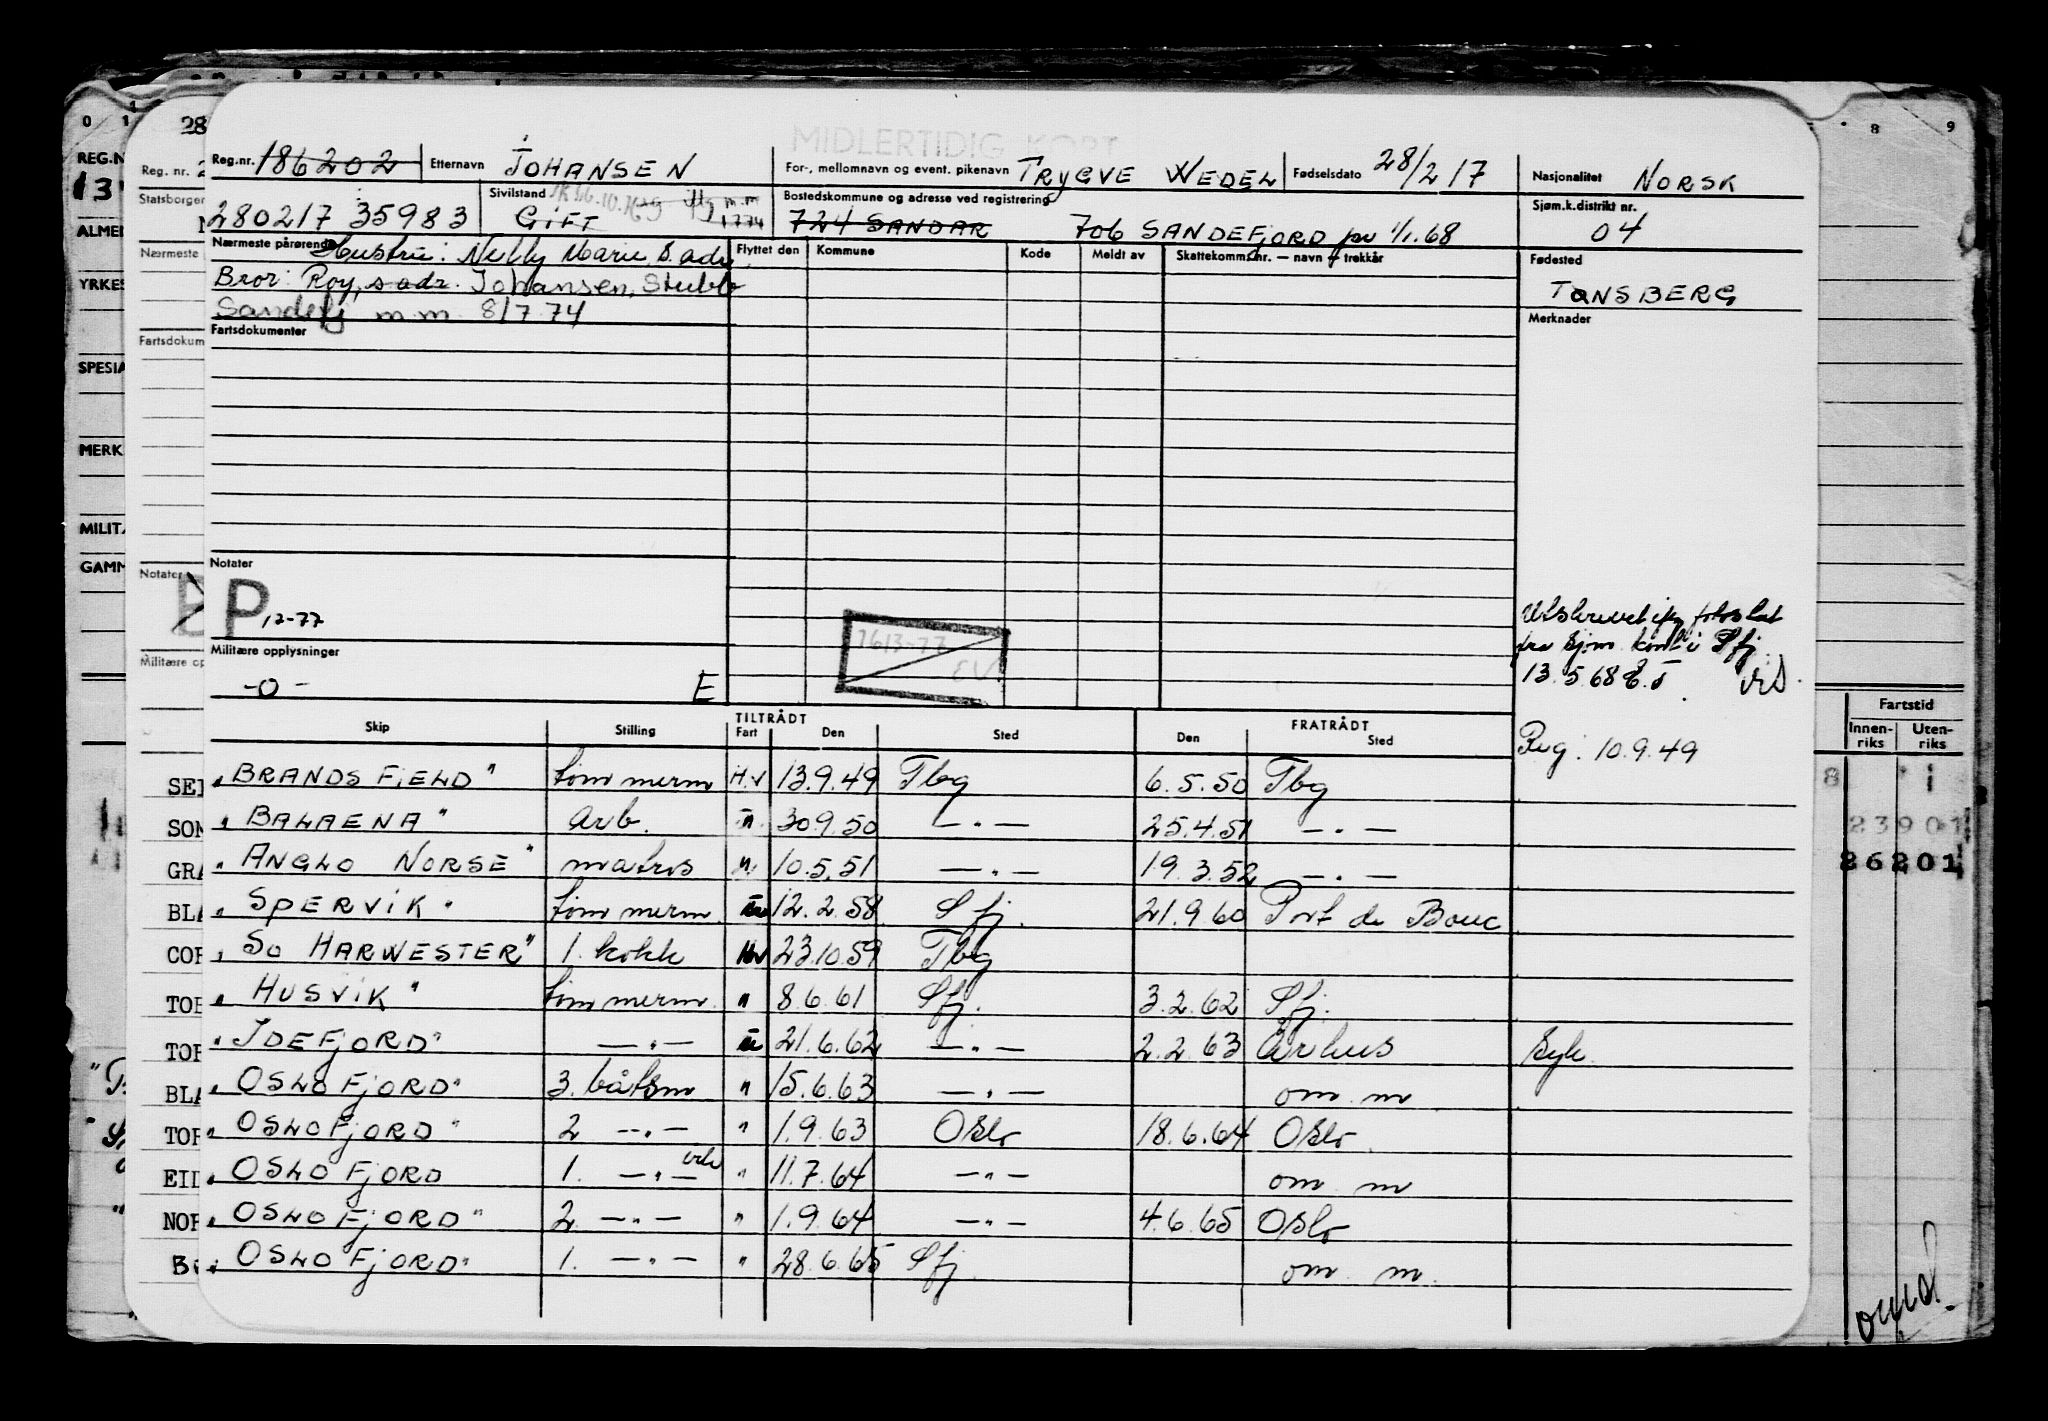 MIDLERTIDIG KORT
Reg.nr. 186202 Etternavn JOHANSEN For-, mellomnavn og event. pikenavn TRYGVE WEDEL Fødselsdato 28/2 17 Nasjonalitet NORSK
280217 35983 Sivilstand GIFT Bostedskommune og adresse ved registrering 724 SANDAR 706 SANDEFJORD pr 1/1.68 Sjøm.k.distrikt nr. 04
Nærmeste pårørende Hustru: Nelly Marie S. adr. Flyttet den Kommune Kode Meldt av Skattekomm.nr. — navn — trekkår Fødested
Bror: Roy, s. adr. Johansen, Stubb TØNSBERG
Sandefj m.m. 8/7 74
Fartsdokumenter Merknader
Notater
P 12-77
1613-77
Utskrevet
fra sjøm. kont i Sfj.
13.5.68
Militære opplysninger
-0- E
Skip Stilling TILTRÅDT Fart Den Sted FRATRÅDT Den Sted
Reg: 10.9.49
"BRANDSFJELD" tømmerm H.v 13.9.49 Tbg 6.5.50 Tbg
"BALAENA" arb. " 30.9.50 — " — 25.4.51 — " —
"ANGLO NORSE" matros " 10.5.51 — " — 19.3.52 — " —
"SPERVIK" tømmerm 12.2.58 Sfj. 21.9.60 Port de Bouc
"SO HARWESTER" 1. kokk Hv 23.10.59 Tbg
"HUSVIK" tømmerm. " 8.6.61 Sfj. 3.2.62 Sfj.
"IDEFJORD" — " — 21.6.62 — " — 2.2.63 Århus Syk.
"OSLOFJORD" 3. båtsm " 15.6.63 — " — om m
"OSLOFJORD" 2 — " — " 1.9.63 Oslo 18.6.64 Oslo
"OSLOFJORD 1. — " — " 11.7.64 — " — om m
"OSLOFJORD" 2. — " — " 1.9.64 — " — 4.6.65 Oslo
"OSLOFJORD" 1. — " — " 28.6.65 Sfj. om m.
Fartstid
Innen-riks Uten-riks
23901
26201